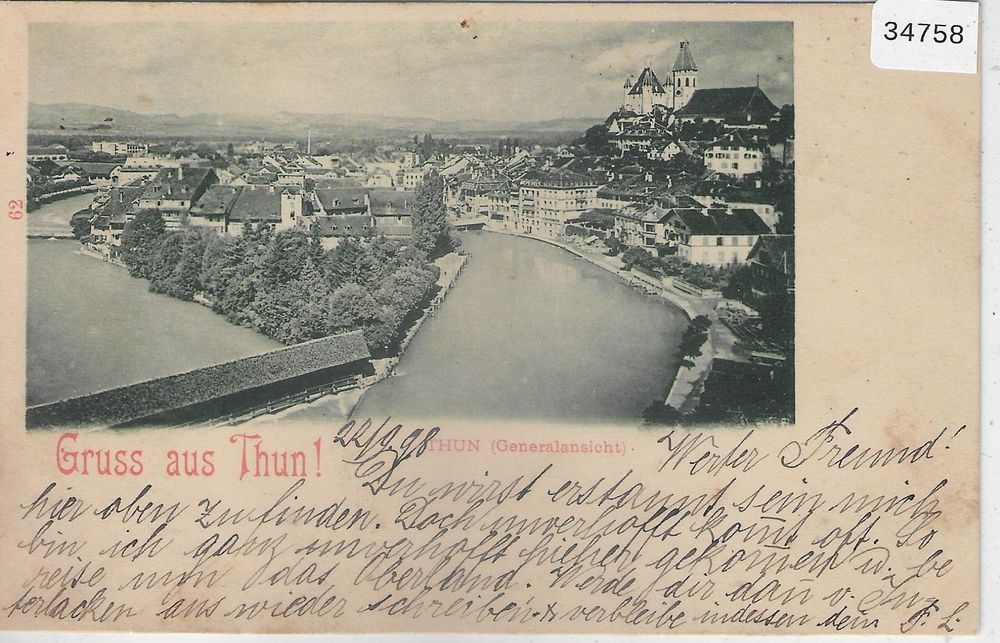 34758
62
Gruss aus Thun!
THUN (Generalansicht).
22/9 98
Werter Freund!
Du wirst erstaunt sein mich
hier oben zu finden. Doch unverhofft kom̅t oft. So
bin ich ganz unverhofft hieher gekom̅en u. be
reise nun das Oberland. Werde dir dan̅ v. In
terlacken aus wieder schreiben & verbleibe indessen dein F. L.